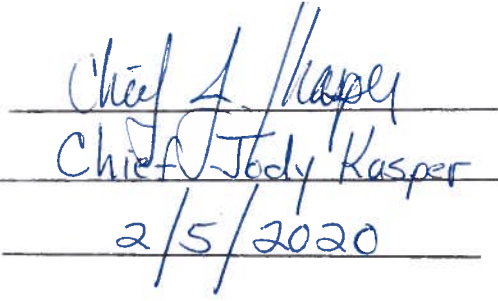 Chief J. Kasper
Chief Jody Kasper
2/5/2020